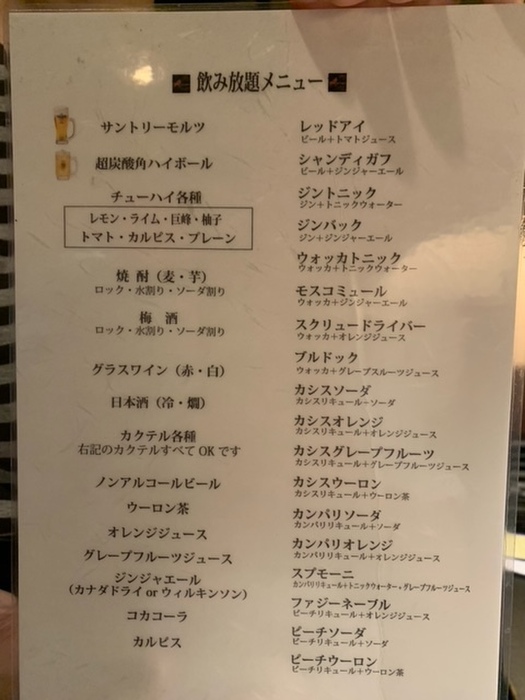 飲み放題メニュー
サントリーモルツ
超炭酸角ハイボール
チューハイ各種
レモン・ライム・巨峰・柚子
トマト・カルピス・プレーン
焼 酎（麦・芋）
ロック・水割り・ソーダ割り
梅 酒
ロック・水割り・ソーダ割り
グラスワイン（赤・白）
日本酒（冷・燗）
カクテル各種
右記のカクテルすべて OK です
ノンアルコールビール
ウーロン茶
オレンジジュース
グレープフルーツジュース
ジンジャエール
（カナダドライ or ウィルキンソン）
コカコーラ
カルピス
レッドアイ
ビール＋トマトジュース
シャンディガフ
ビール＋ジンジャーエール
ジントニック
ジン＋トニックウォーター
ジンバック
ジン＋ジンジャーエール
ウォッカトニック
ウォッカ＋トニックウォーター
モスコミュール
ウォッカ＋ジンジャーエール
スクリュードライバー
ウォッカ＋オレンジジュース
ブルドック
ウォッカ＋グレープスルーツジュース
カシスソーダ
カシスリキュール＋ソーダ
カシスオレンジ
カシスリキュール＋オレンジジュース
カシスグレープフルーツ
カシスリキュール＋グレープフルーツジュース
カシスウーロン
カシスリキュール＋ウーロン茶
カンパリソーダ
カンパリリキュール＋ソーダ
カンパリオレンジ
カンパリリキュール＋オレンジジュース
スプモーニ
カンパリリキュール＋トニックウォーター＋グレープフルーツジュース
ファジーネーブル
ピーチリキュール＋オレンジジュース
ピーチソーダ
ピーチリキュール＋ソーダ
ピーチウーロン
ピーチリキュール＋ウーロン茶